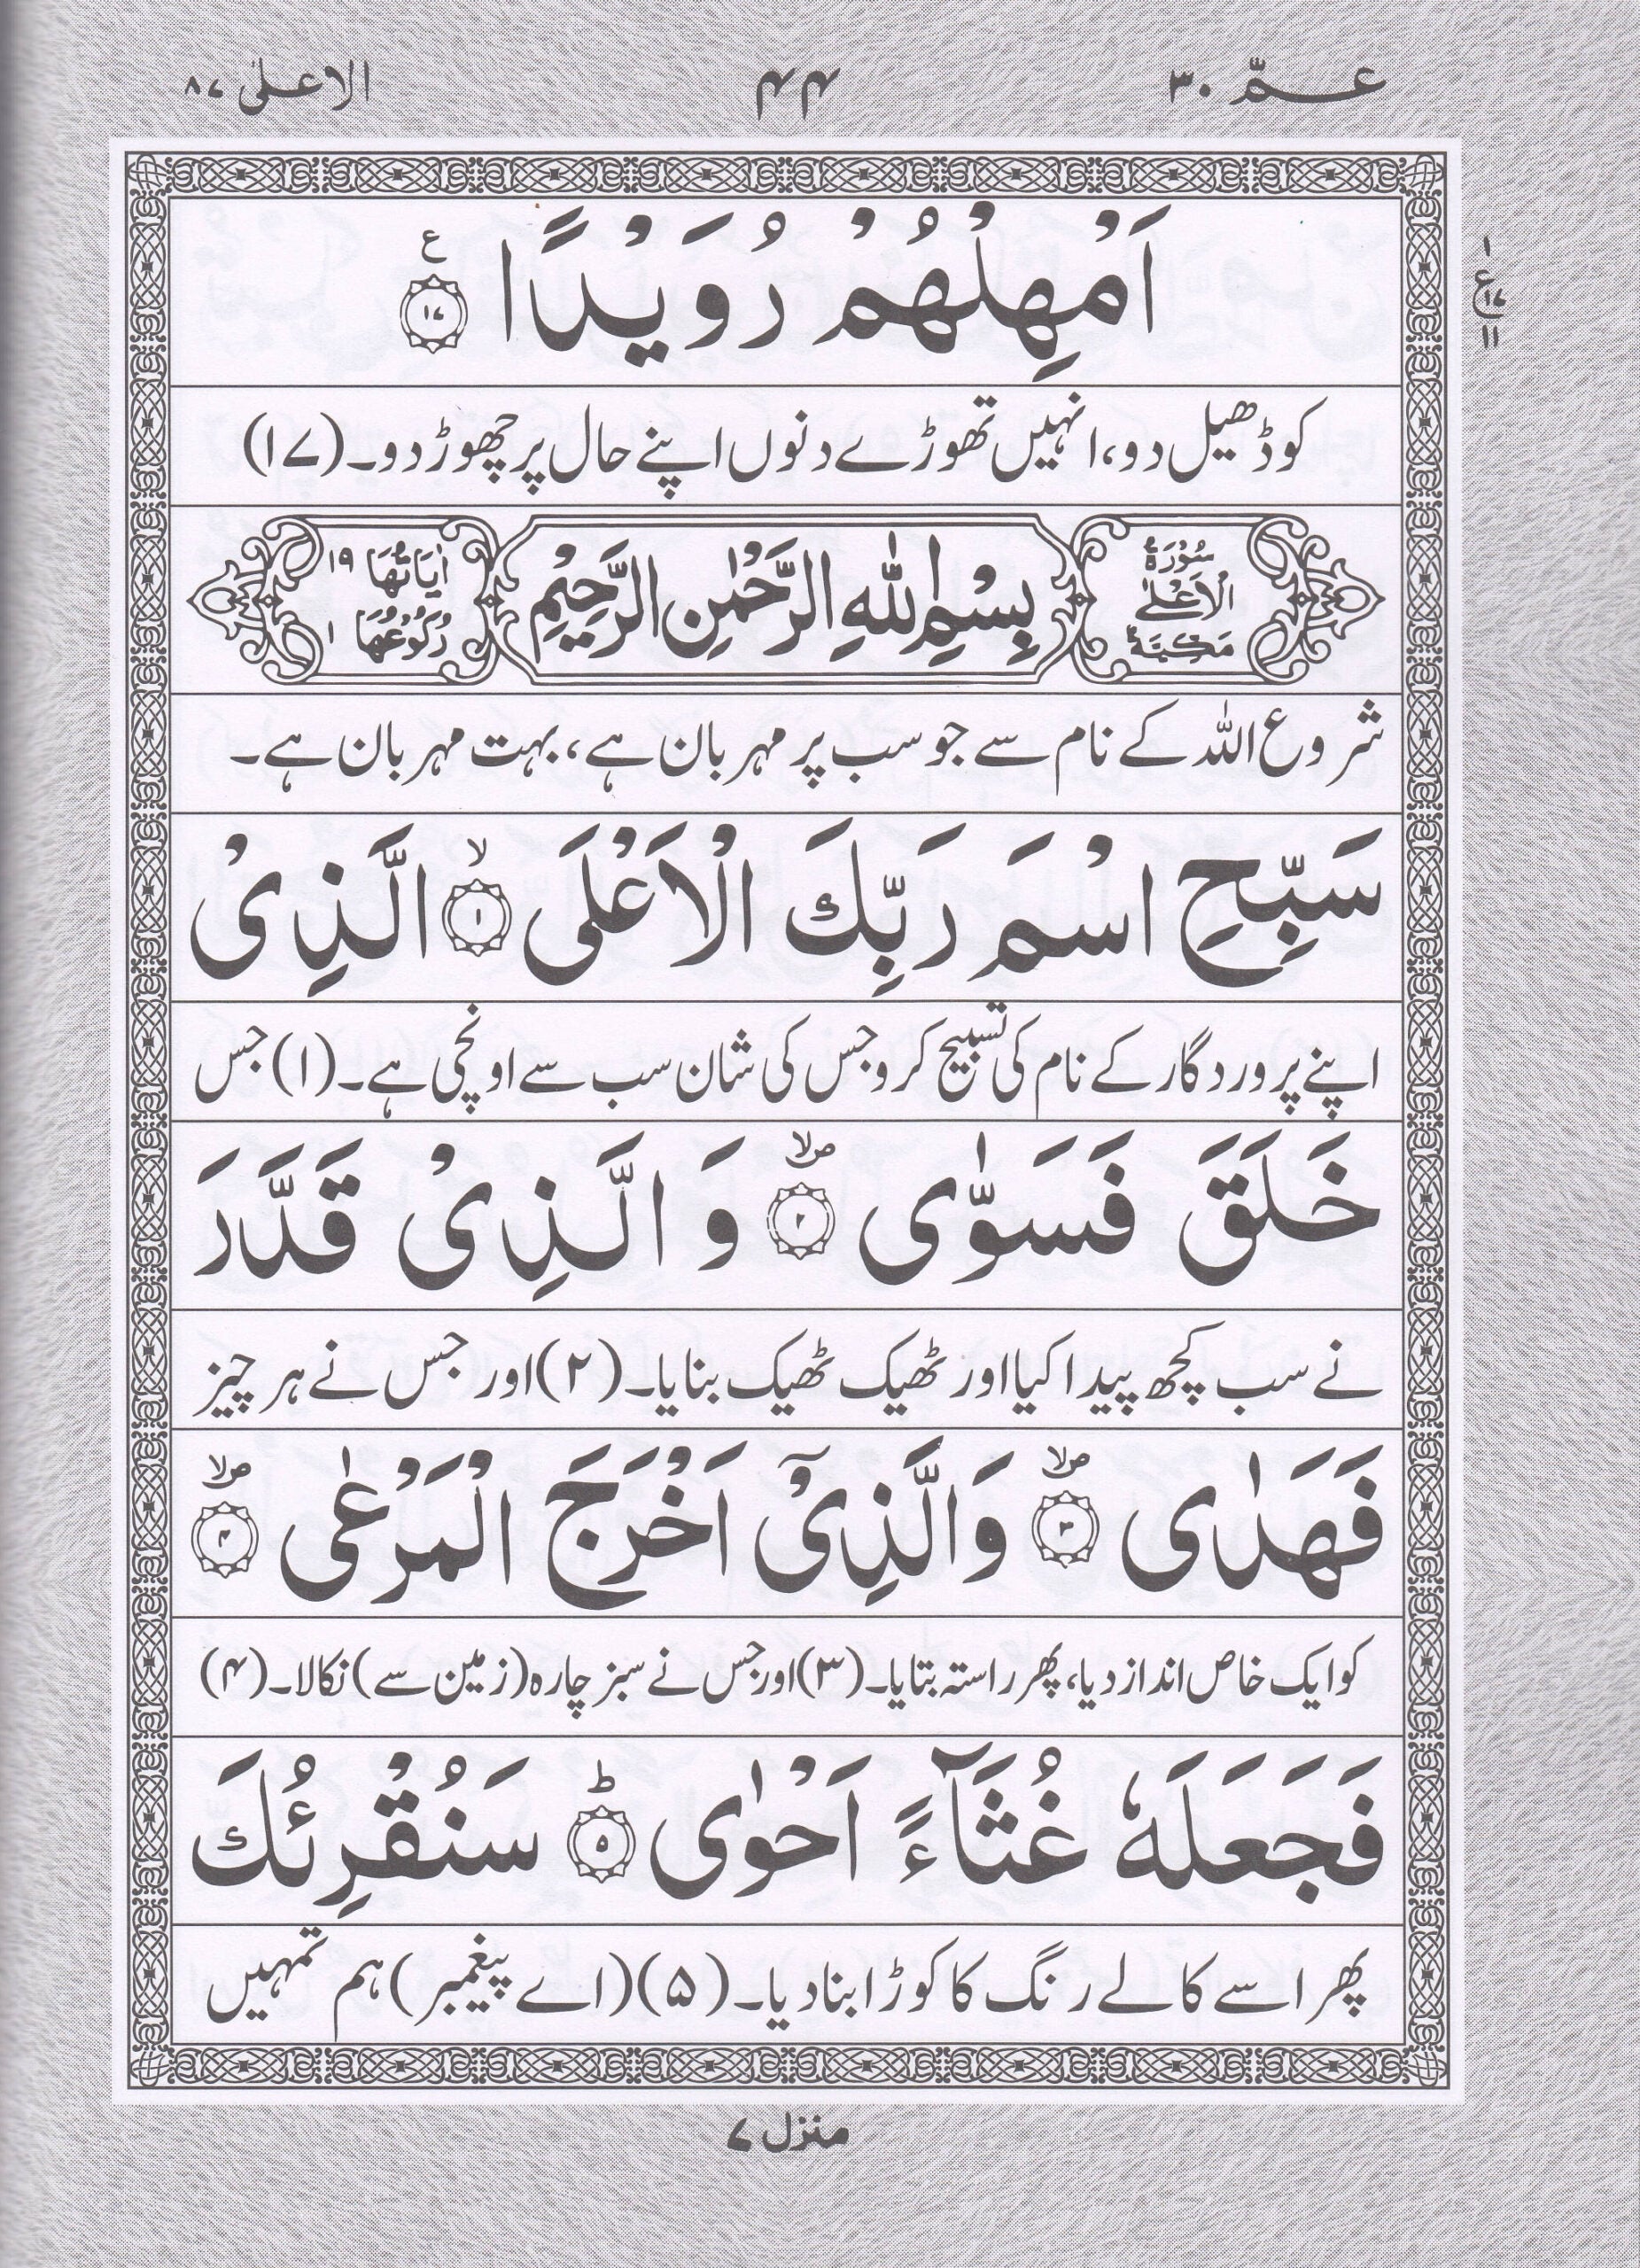 عــمّ ۳۰
۴۴
الاعلیٰ ۸۷
اَمْهِلْهُمْ رُوَيْدًا ۧ ۝۱۷
۱
ع
۱۷
۱۱
کو ڈھیل دو، انہیں تھوڑے دنوں اپنے حال پر چھوڑ دو۔ (۱۷)
سُوْرَةُ الْاَعْلٰى مَكِّيَّةٌ
بِسْمِ اللّٰهِ الرَّحْمٰنِ الرَّحِيْمِ
اٰيَاتُهَا ۱۹
رُكُوْعُهَا ۱
شروع اللہ کے نام سے جو سب پر مہربان ہے، بہت مہربان ہے۔
سَبِّحِ اسْمَ رَبِّكَ الْاَعْلَى ۝۱ۙ الَّذِىْ
اپنے پروردگار کے نام کی تسبیح کرو جس کی شان سب سے اونچی ہے۔ (۱) جس
خَلَقَ فَسَوّٰى ۝۲۪ۙ وَ الَّذِىْ قَدَّرَ
نے سب کچھ پیدا کیا اور ٹھیک ٹھیک بنایا۔ (۲) اور جس نے ہر چیز
فَهَدٰى ۝۳۪ۙ وَالَّذِىْۤ اَخْرَجَ الْمَرْعٰى ۝۴۪ۙ
کو ایک خاص انداز دیا، پھر راستہ بتایا۔ (۳) اور جس نے سبز چارہ (زمین سے) نکالا۔ (۴)
فَجَعَلَهٗ غُثَآءً اَحْوٰى ۝۵ؕ سَنُقْرِئُكَ
پھر اسے کالے رنگ کا کوڑا بنا دیا۔ (۵) (اے پیغمبر) ہم تمہیں
منزل ۷